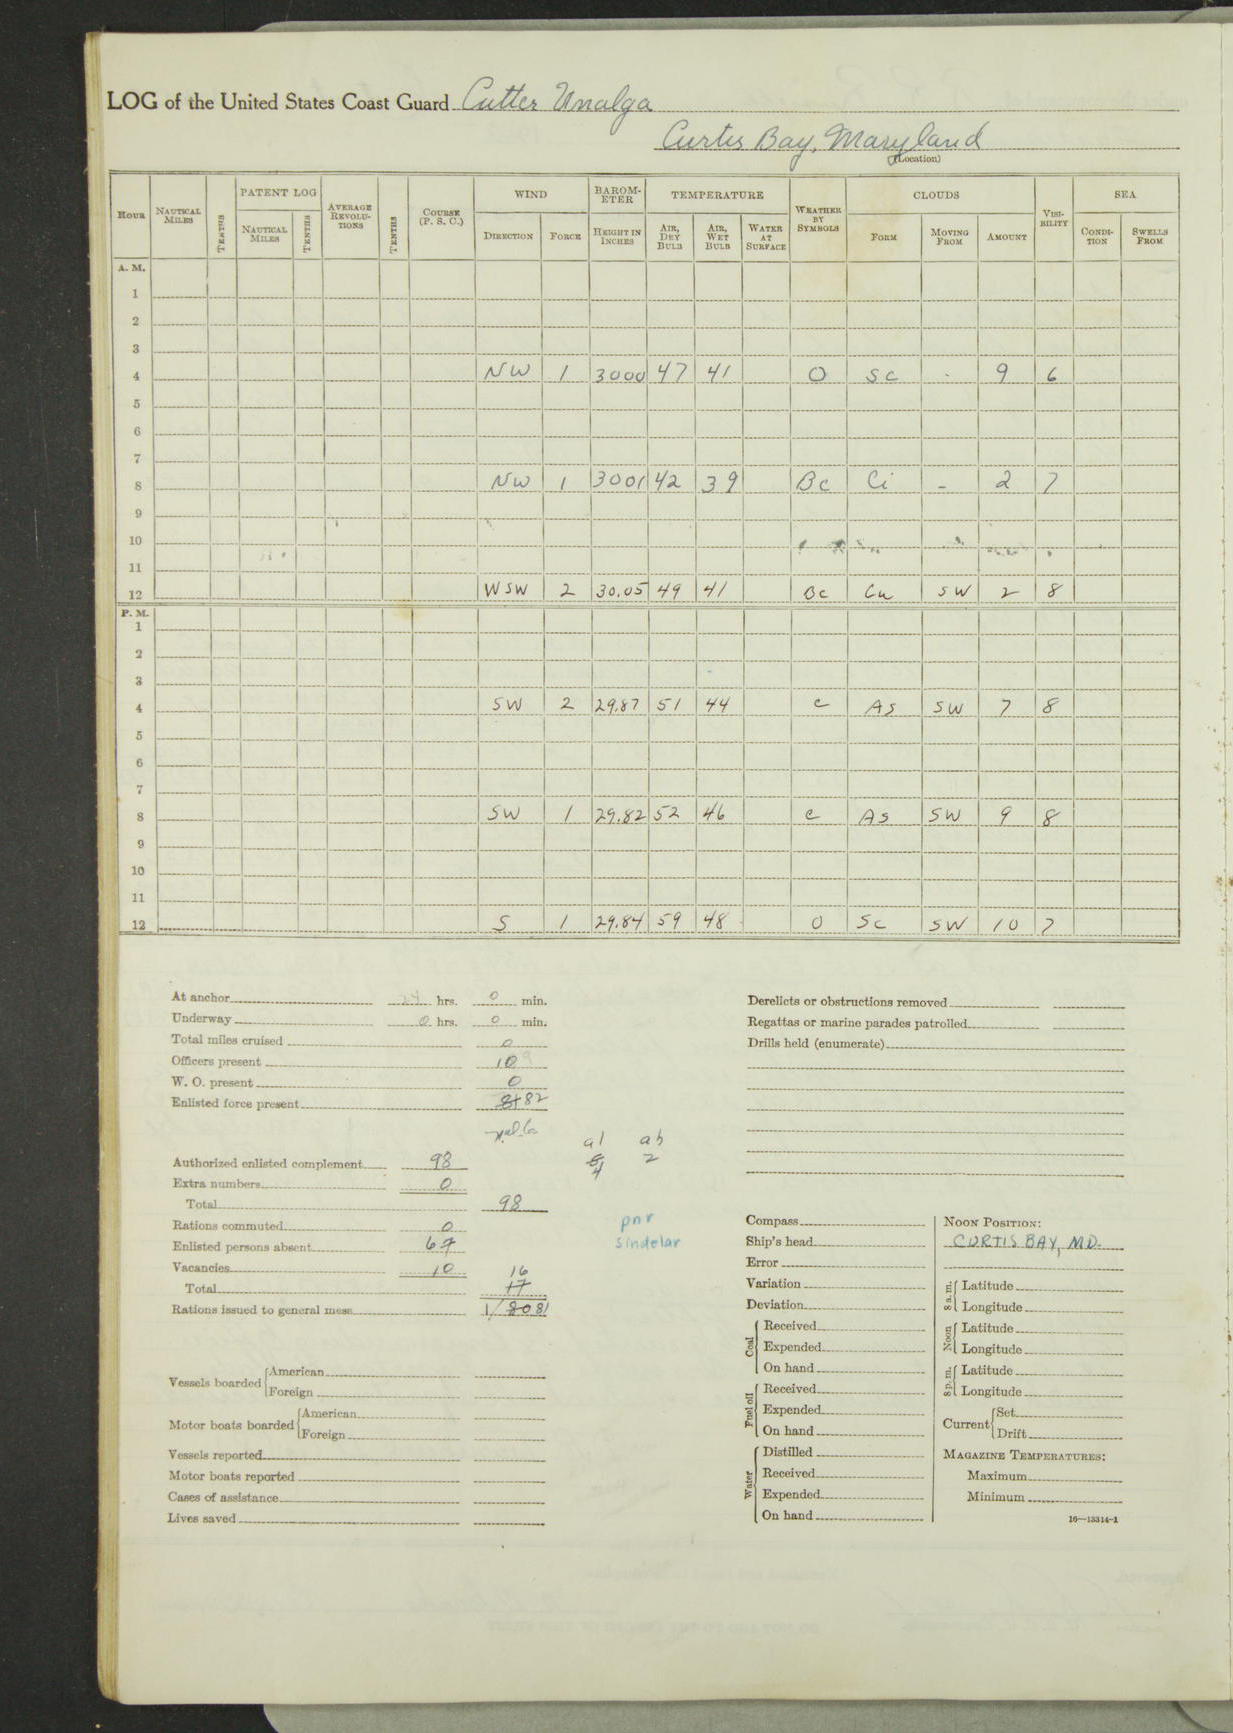 LOG of the United States Coast Guard Cutter Unalga
Curtis Bay, Maryland
(Location)
HOUR NAUTICAL MILES TENTHS PATENT LOG NAUTICAL MILES TENTHS AVERAGE REVOLUTIONS TENTHS COURSE (P. S. C.) WIND DIRECTION FORCE BAROMETER HEIGHT IN INCHES TEMPERATURE AIR, DRY BULB AIR, WET BULB WATER AT SURFACE WEATHER BY SYMBOLS CLOUDS FORM MOVING FROM AMOUNT VISIBILITY SEA CONDITION SWELLS FROM
A. M.
1
2
3
4 NW 1 3000 47 41 O Sc - 9 6
5
6
7
8 NW 1 3001 42 39 Bc Ci - 2 7
9
10
11
12 WSW 2 30.05 49 41 Bc Cu SW 2 8
P. M.
1
2
3
4 SW 2 29.87 51 44 c As SW 7 8
5
6
7
8 SW 1 29.82 52 46 c As SW 9 8
9
10
11
12 S 1 29.84 59 48 O Sc SW 10 7
At anchor 24 hrs. 0 min.
Underway 0 hrs. 0 min.
Total miles cruised 0
Officers present 10 9
W. O. present 0
Enlisted force present 81 82
al ab
5 2
4
Authorized enlisted complement 98
Extra numbers 0
Total 98
Rations commuted 0
Enlisted persons absent 6 7
Vacancies 10 16
Total 17
Rations issued to general mess 1/80 81
pnr
Sindelar
Vessels boarded American
Foreign
Motor boats boarded American
Foreign
Vessels reported
Motor boats reported
Cases of assistance
Lives saved
Derelicts or obstructions removed
Regattas or marine parades patrolled
Drills held (enumerate)
Compass
Ship's head
Error
Variation
Deviation
Coal Received
Expended
On hand
Fuel oil Received
Expended
On hand
Water Distilled
Received
Expended
On hand
NOON POSITION:
CURTIS BAY, MD.
8 a. m. Latitude
Longitude
Noon Latitude
Longitude
8 p. m. Latitude
Longitude
Current Set
Drift
MAGAZINE TEMPERATURES:
Maximum
Minimum
16—13314-1